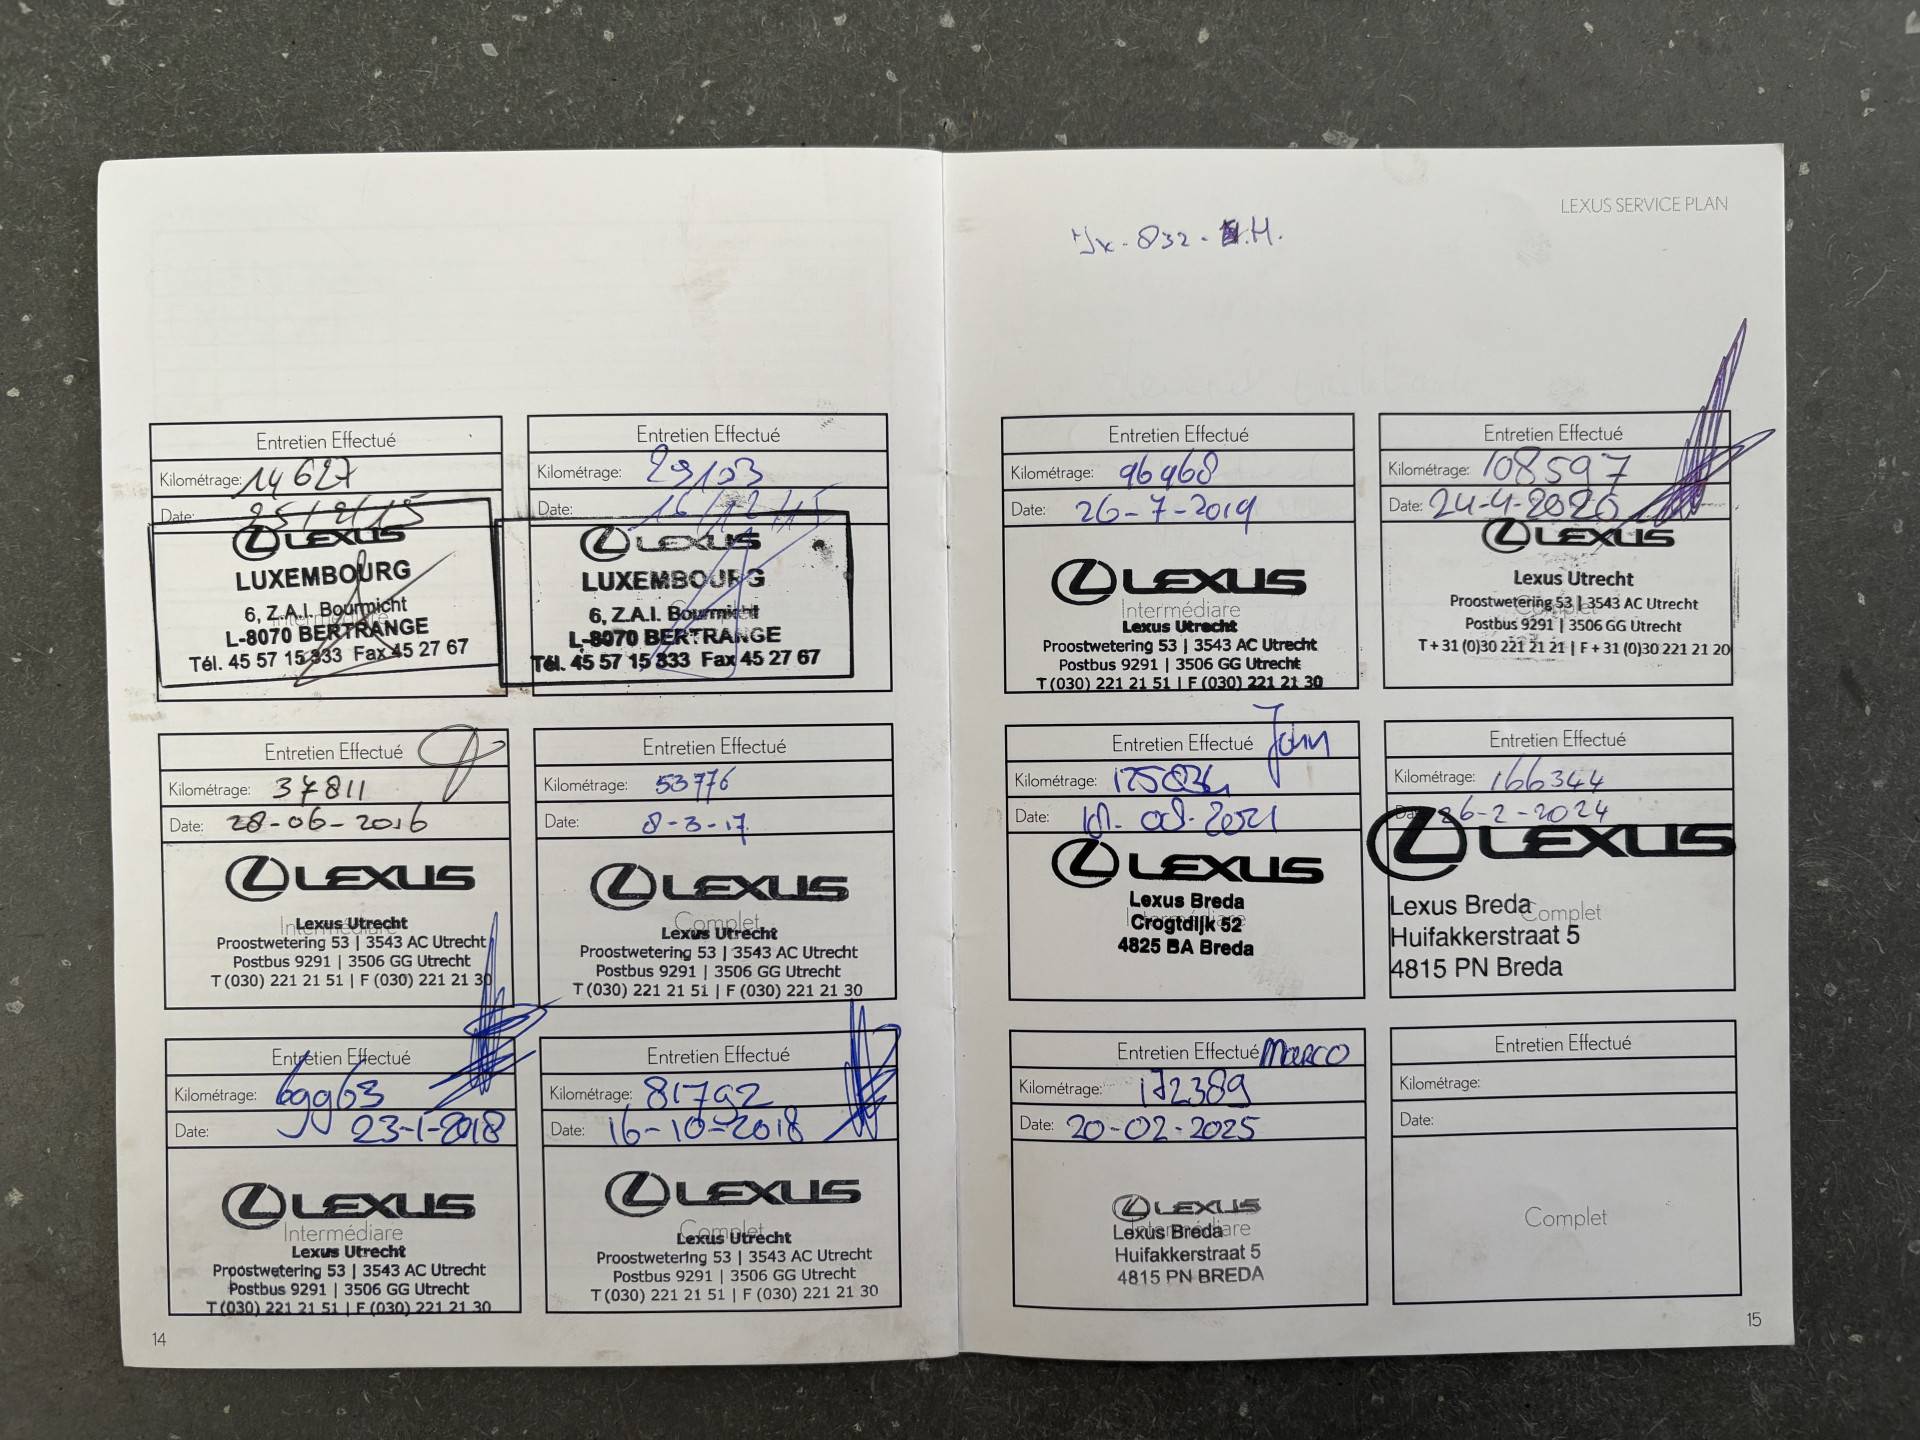 LEXUS SERVICE PLAN
Entretien Effectué
Kilométrage: 14627
Date: 25/2/15
LEXUS
LUXEMBOURG
6, Z.A.I. Bourmicht
L-8070 BERTRANGE
Tél. 45 57 15 333 Fax 45 27 67
Entretien Effectué
Kilométrage: 29103
Date: 16/12/15
LEXUS
LUXEMBOURG
6, Z.A.I. Bourmicht
L-8070 BERTRANGE
Tél. 45 57 15 333 Fax 45 27 67
Entretien Effectué
Kilométrage: 37811
Date: 28-06-2016
LEXUS
Intermédiare
Lexus Utrecht
Proostwetering 53 | 3543 AC Utrecht
Postbus 9291 | 3506 GG Utrecht
T (030) 221 21 51 | F (030) 221 21 30
Entretien Effectué
Kilométrage: 53776
Date: 8-3-17
LEXUS
Complet
Lexus Utrecht
Proostwetering 53 | 3543 AC Utrecht
Postbus 9291 | 3506 GG Utrecht
T (030) 221 21 51 | F (030) 221 21 30
Entretien Effectué
Kilométrage: 69963
Date: 23-1-2018
LEXUS
Intermédiare
Lexus Utrecht
Proostwetering 53 | 3543 AC Utrecht
Postbus 9291 | 3506 GG Utrecht
T (030) 221 21 51 | F (030) 221 21 30
Entretien Effectué
Kilométrage: 81792
Date: 16-10-2018
LEXUS
Complet
Lexus Utrecht
Proostwetering 53 | 3543 AC Utrecht
Postbus 9291 | 3506 GG Utrecht
T (030) 221 21 51 | F (030) 221 21 30
14
Entretien Effectué
Kilométrage: 96968
Date: 26-7-2019
LEXUS
Intermédiare
Lexus Utrecht
Proostwetering 53 | 3543 AC Utrecht
Postbus 9291 | 3506 GG Utrecht
T (030) 221 21 51 | F (030) 221 21 30
Entretien Effectué
Kilométrage: 108597
Date: 24-4-2020
LEXUS
Lexus Utrecht
Complet
Proostwetering 53 | 3543 AC Utrecht
Postbus 9291 | 3506 GG Utrecht
T + 31 (0)30 221 21 21 | F + 31 (0)30 221 21 20
Entretien Effectué
Kilométrage:
Date:
LEXUS
Lexus Breda
Intermédiare
Crogtdijk 52
4825 BA Breda
Entretien Effectué
Kilométrage: 166344
Date: 26-2-2024
LEXUS
Lexus Breda
Complet
Huifakkerstraat 5
4815 PN Breda
Entretien Effectué Marco
Kilométrage: 172389
Date: 20-02-2025
LEXUS
Intermédiare
Lexus Breda
Huifakkerstraat 5
4815 PN BREDA
Entretien Effectué
Kilométrage:
Date:
Complet
15